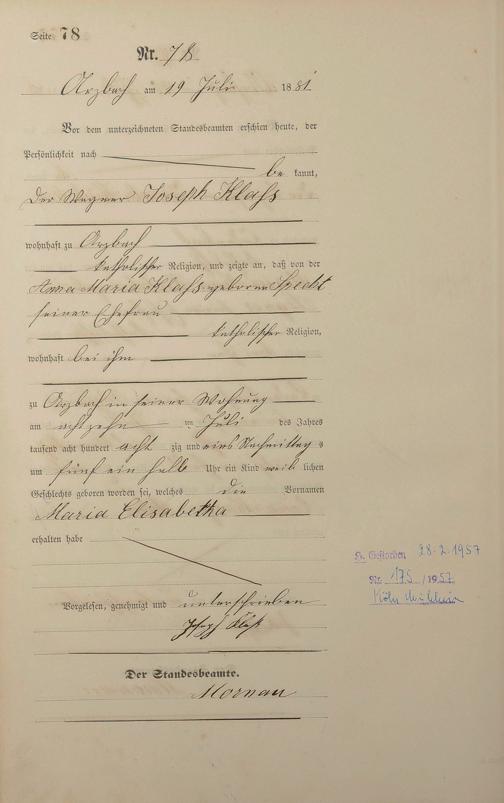 Seite 78
Nr. 78
Arzbach am 19 Juli 1881
Vor dem unterzeichneten Standesbeamten erschien heute, der
Persönlichkeit nach
be kannt,
Der Wegner Joseph Klaß
wohnhaft zu Arzbach
katholischer Religion, und zeigte an, daß von der
Anna Maria Klaß geborene Specht
seiner Ehefrau
katholischer Religion,
wohnhaft bei ihm
zu Arzbach in seiner Wohnung
am achtzehn ten Juli des Jahres
tausend acht hundert acht zig und eins Nachmittag s
um fünf ein halb Uhr ein Kind weib lichen
Geschlechts geboren worden sei, welches die Vornamen
Maria Elisabetha
erhalten habe
Vorgelesen, genehmigt und unterschrieben
Joseph Klaß
Der Standesbeamte.
Mornau
Gestorben 28.2.1957
Nr. 175/1957
Köln Mülheim